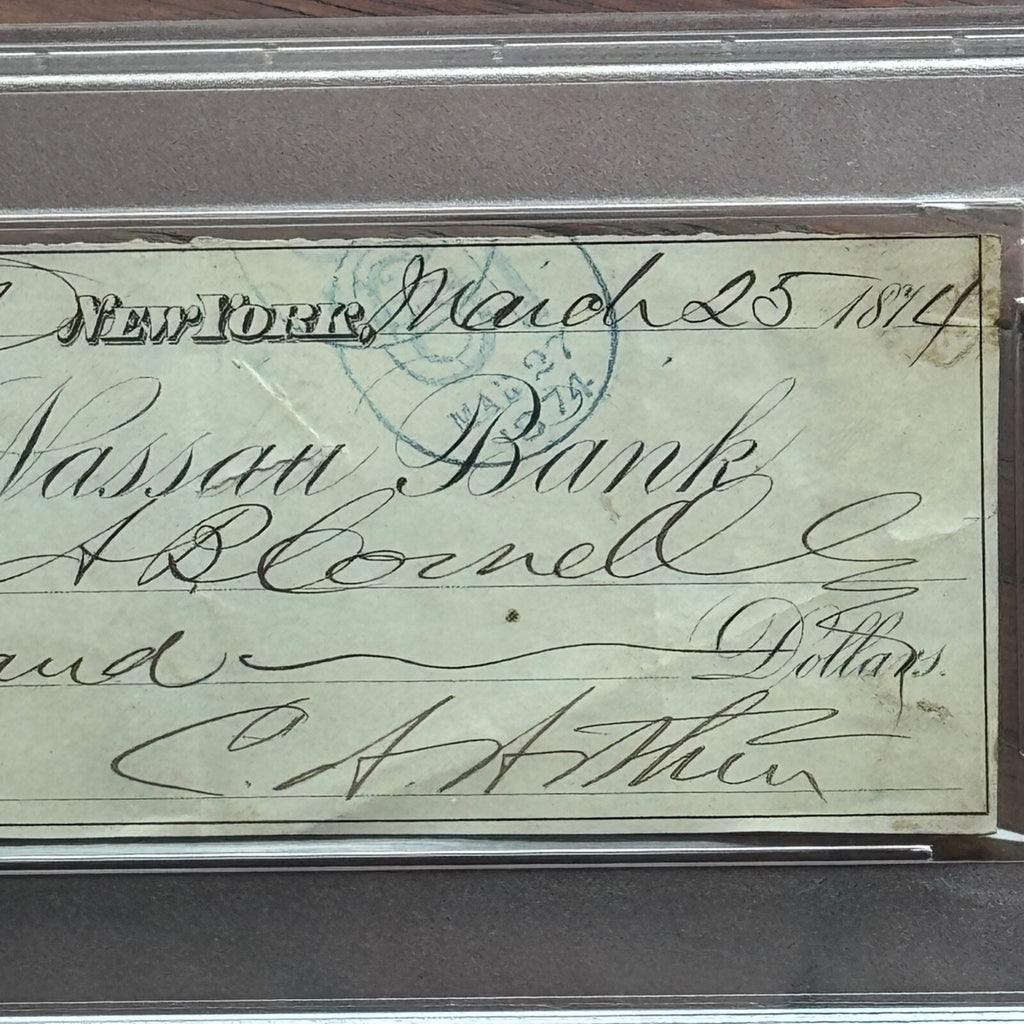 New York, March 25 1874
MAR 27
1874
Nassau Bank
A B Cornell
and Dollars.
C. A. Arthur